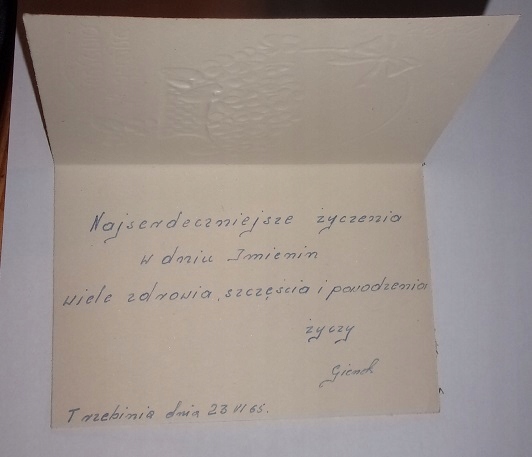 Najserdeczniejsze życzenia
w dniu Imienin
wiele zdrowia, szczęścia i powodzenia
życzy
Trzebinia dnia 23 VI 65.